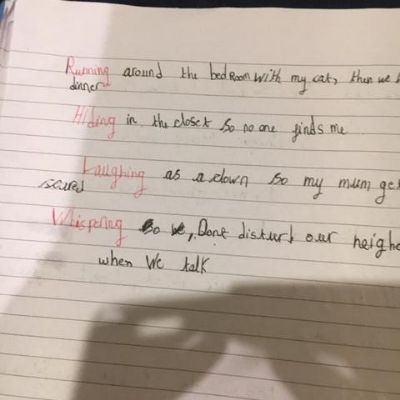 Running around the bedRoom with my cat, then we h
dinner
Hiding in the closet so no one finds me
Laughing as a clown so my mum get
scared
Whispering so we, Dont disturb our neighb
when we talk